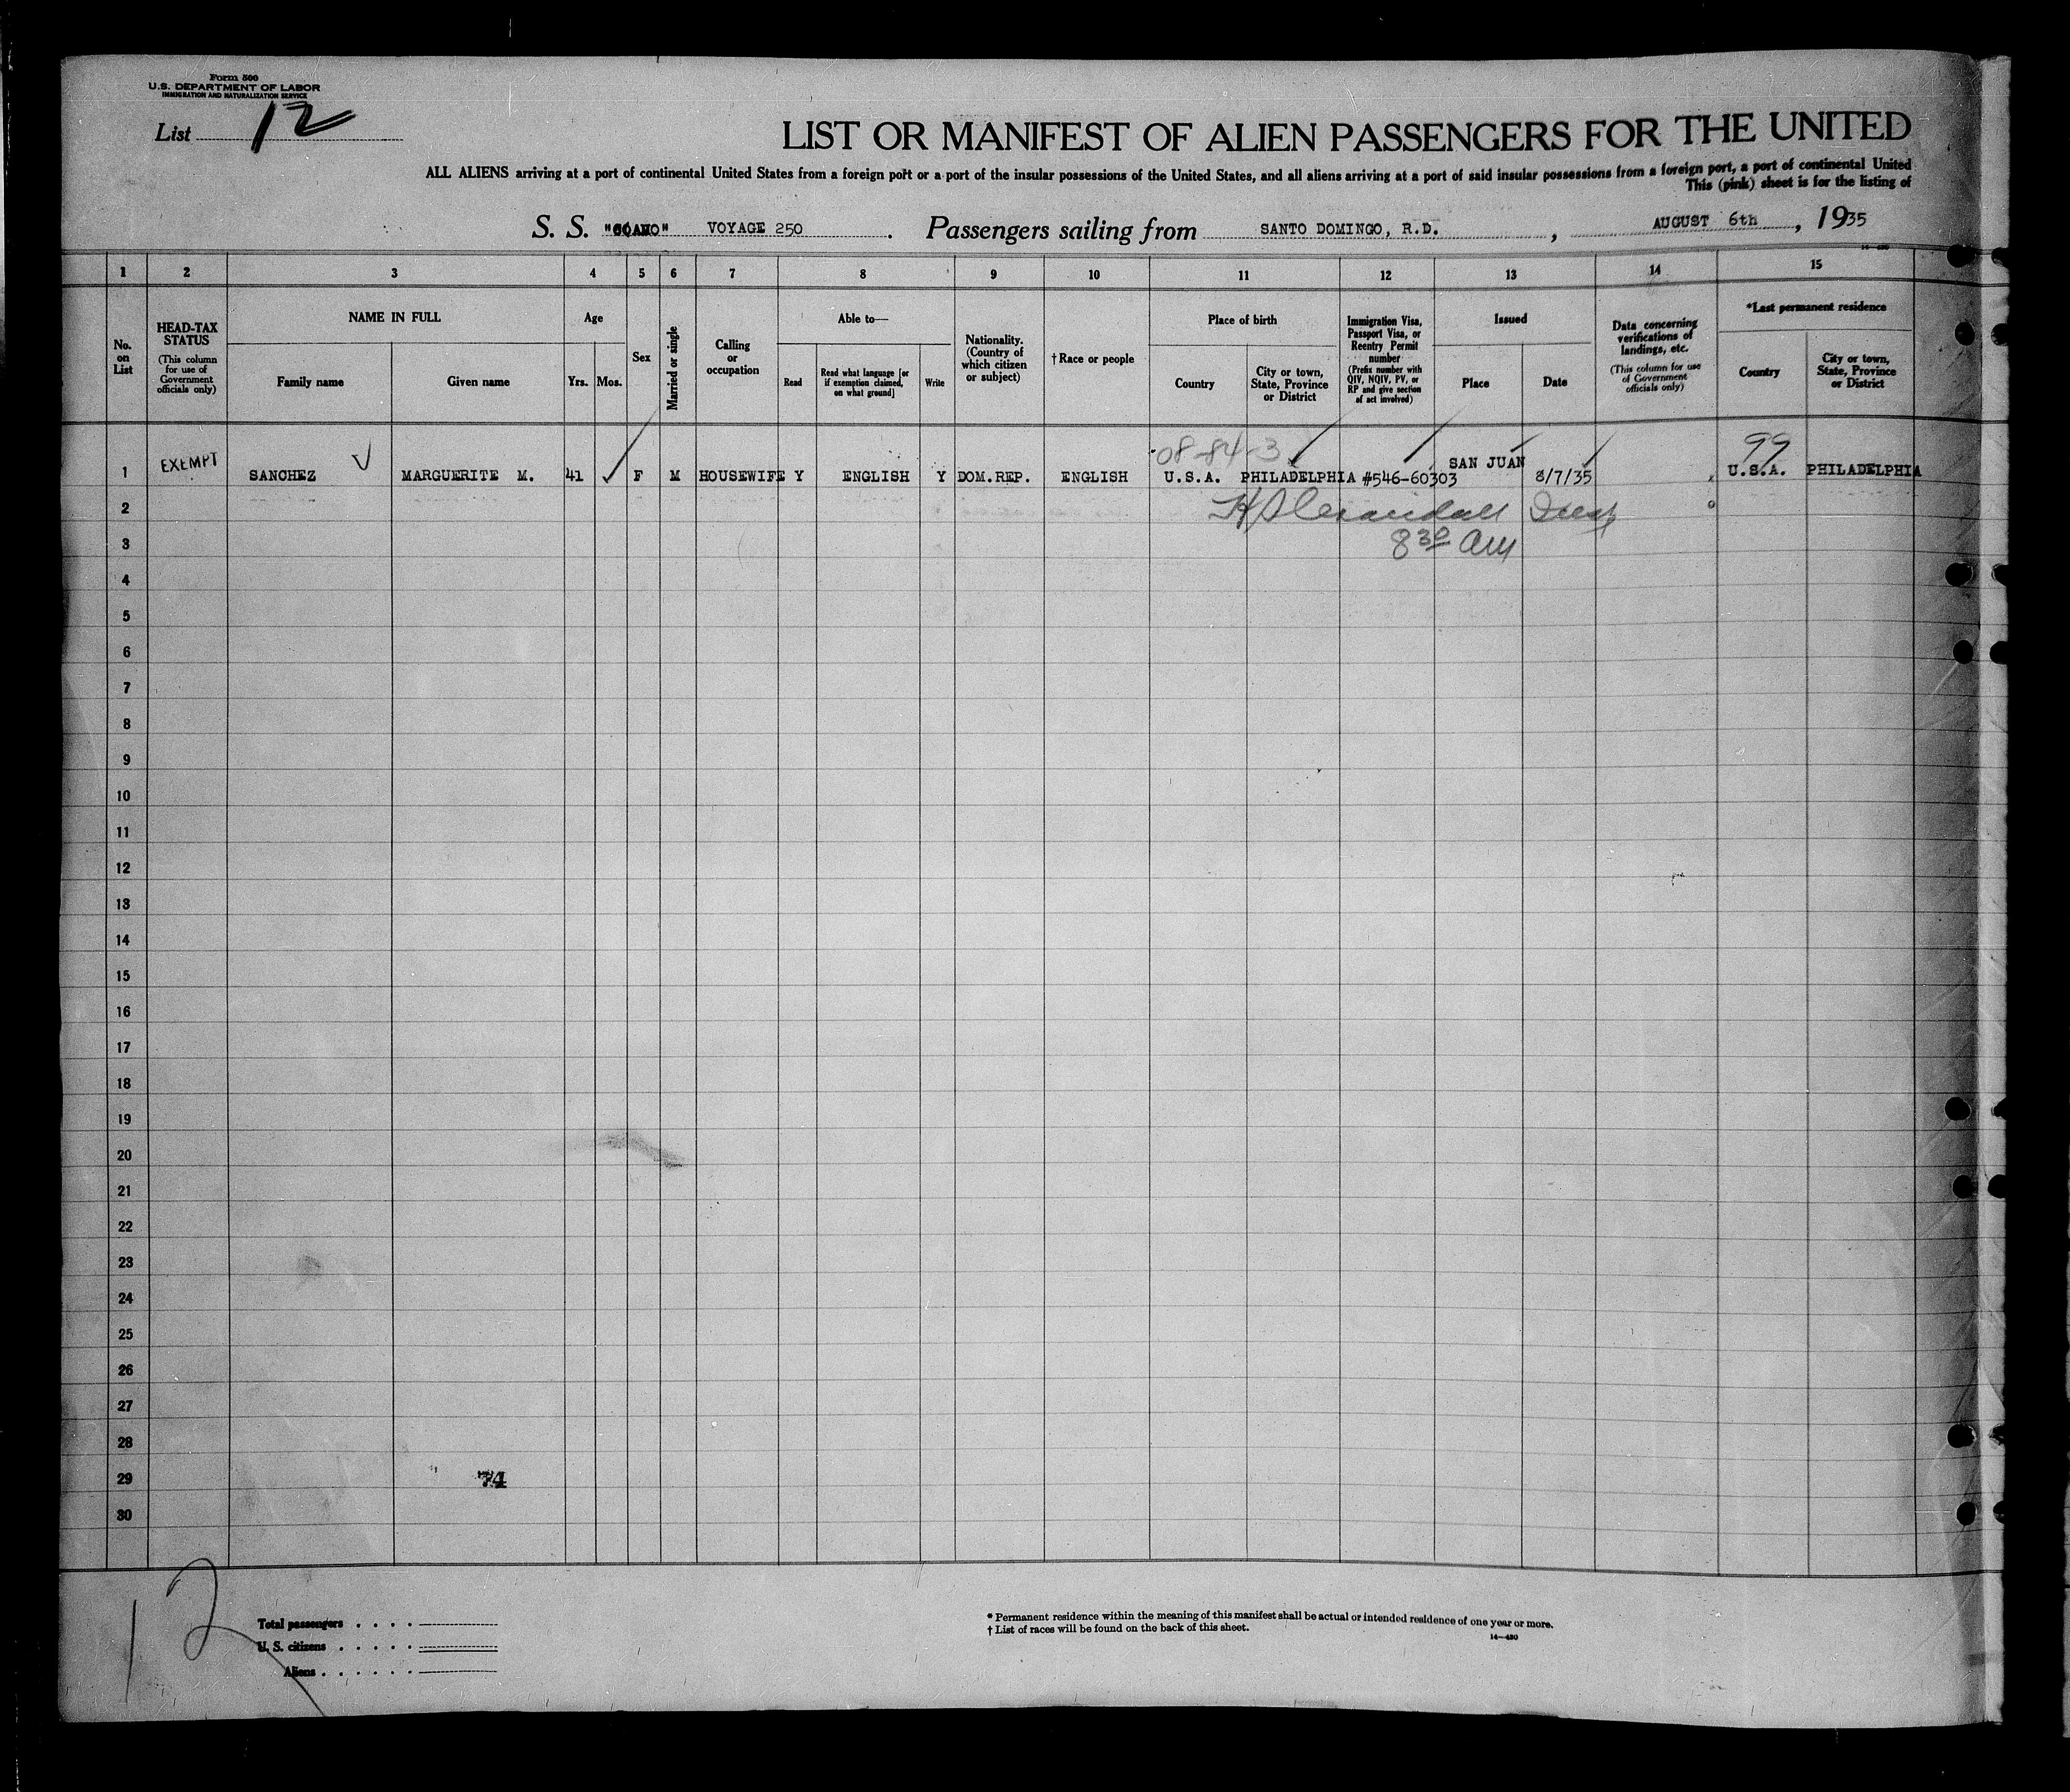 Form 500
U.S. DEPARTMENT OF LABOR
IMMIGRATION AND NATURALIZATION SERVICE
List 12
LIST OR MANIFEST OF ALIEN PASSENGERS FOR THE UNITED
ALL ALIENS arriving at a port of continental United States from a foreign port or a port of the insular possessions of the United States, and all aliens arriving at a port of said insular possessions from a foreign port, a port of continental United
This (pink) sheet is for the listing of
S. S. "COAMO" VOYAGE 250 . Passengers sailing from SANTO DOMINGO, R.D. , AUGUST 6th , 1935
14-430
1 2 3 4 5 6 7 8 9 10 11 12 13 14 15
No. on List
HEAD-TAX STATUS
(This column for use of Government officials only)
NAME IN FULL
Family name
Given name
Age
Yrs. Mos.
Sex
Married or single
Calling or occupation
Able to—
Read
Read what language [or if exemption claimed, on what ground]
Write
Nationality. (Country of which citizen or subject)
†Race or people
Place of birth
Country
City or town, State, Province or District
Immigration Visa, Passport Visa, or Reentry Permit number
(Prefix number with QIV, NQIV, PV, or RP and give section of act involved)
Issued
Place
Date
Data concerning verifications of landings, etc.
(This column for use of Government officials only)
*Last permanent residence
Country
City or town, State, Province or District
08-84-3 99
1 EXEMPT SANCHEZ MARGUERITE M. 41 F M HOUSEWIFE Y ENGLISH Y DOM.REP. ENGLISH U.S.A. PHILADELPHIA #546-60303 SAN JUAN 8/7/35 U.S.A. PHILADELPHIA
2
3 8 30 am
4
5
6
7
8
9
10
11
12
13
14
15
16
17
18
19
20
21
22
23
24
25
26
27
28
29 74
30
12
Total passengers . . . .
U. S. citizens . . . . .
Aliens . . . . . .
* Permanent residence within the meaning of this manifest shall be actual or intended residence of one year or more.
† List of races will be found on the back of this sheet.
14-430